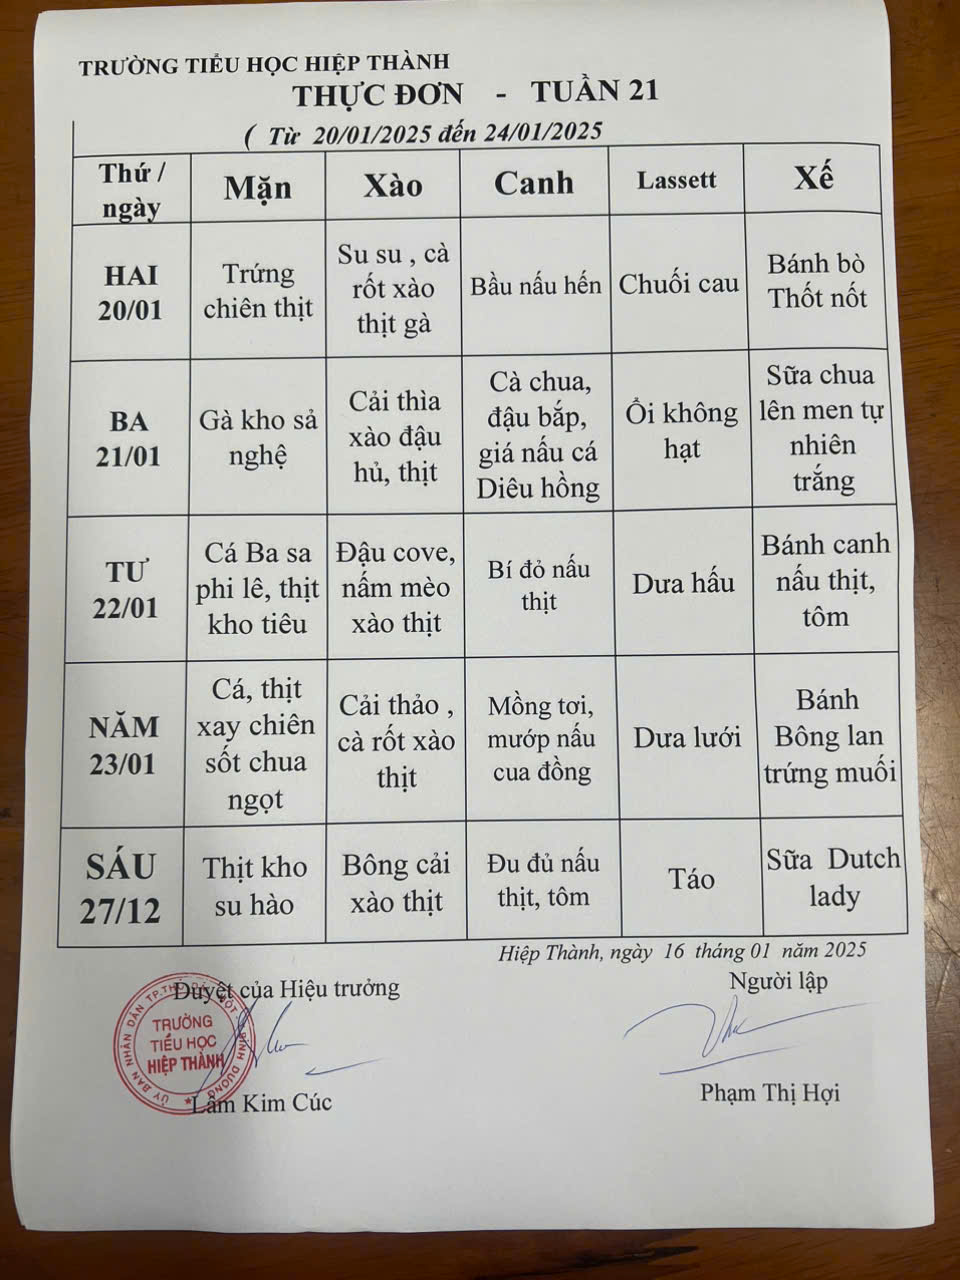 TRƯỜNG TIỂU HỌC HIỆP THÀNH
THỰC ĐƠN - TUẦN 21
( Từ 20/01/2025 đến 24/01/2025
Thứ /
ngày
Mặn
Xào
Canh
Lassett
Xế
HAI
20/01
Trứng
chiên thịt
Su su , cà
rốt xào
thịt gà
Bầu nấu hến
Chuối cau
Bánh bò
Thốt nốt
BA
21/01
Gà kho sả
nghệ
Cải thìa
xào đậu
hủ, thịt
Cà chua,
đậu bắp,
giá nấu cá
Diêu hồng
Ổi không
hạt
Sữa chua
lên men tự
nhiên
trắng
TƯ
22/01
Cá Ba sa
phi lê, thịt
kho tiêu
Đậu cove,
nấm mèo
xào thịt
Bí đỏ nấu
thịt
Dưa hấu
Bánh canh
nấu thịt,
tôm
NĂM
23/01
Cá, thịt
xay chiên
sốt chua
ngọt
Cải thảo ,
cà rốt xào
thịt
Mồng tơi,
mướp nấu
cua đồng
Dưa lưới
Bánh
Bông lan
trứng muối
SÁU
27/12
Thịt kho
su hào
Bông cải
xào thịt
Đu đủ nấu
thịt, tôm
Táo
Sữa Dutch
lady
Hiệp Thành, ngày 16 tháng 01 năm 2025
Duyệt của Hiệu trưởng
Người lập
TRƯỜNG
TIỂU HỌC
HIỆP THÀNH
ỦY BAN NHÂN DÂN TP.THỦ DẦU MỘT
BÌNH DƯƠNG
Lâm Kim Cúc
Phạm Thị Hợi